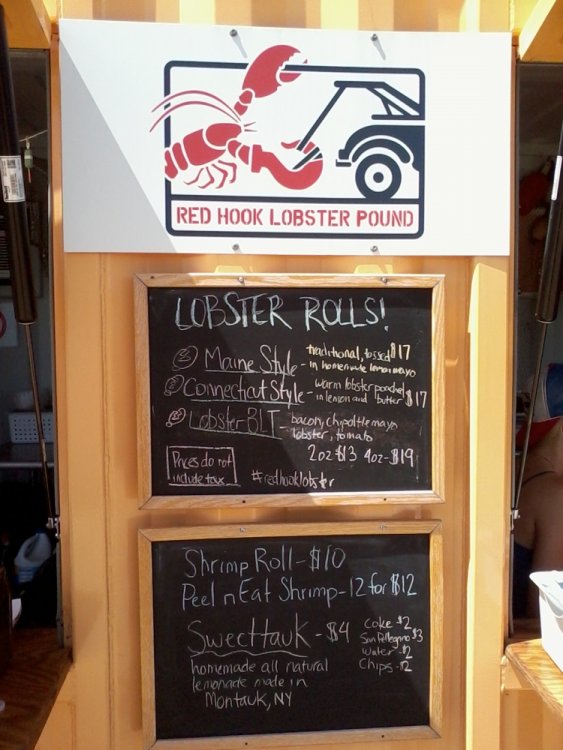 RED HOOK LOBSTER POUND
LOBSTER ROLLS!
Maine Style - traditional, tossed $17
in homemade lemon mayo
Connecticut Style - warm lobster poached
in lemon and butter $17
Lobster BLT - bacon, chipoltle mayo
lobster, tomato
2oz $13 4oz - $19
Prices do not
include tax.
#redhooklobster
Shrimp Roll - $10
Peel n Eat Shrimp - 12 for $12
Sweethauk - $4
homemade all natural
lemonade made in
Montauk, NY
Coke $2
San Pellegrino $3
Water - $2
Chips - $2